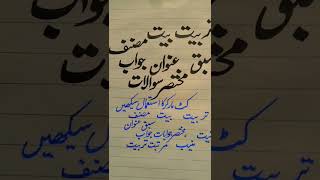 تربیت بیت مصنف
سبق عنوان جواب
مختصر سوالات
کٹ مارکر کا استعمال سیکھیں
تربیت بیت مصنف
سبق عنوان
مختصر سوالات جواب
تربیت